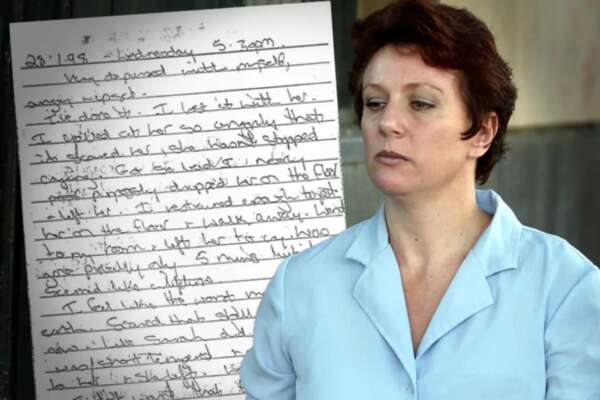 28.1.98 Wednesday 5.30pm.
Very depressed with myself,
angry + upset.
I've done it. I lost it with her.
I yelled at her so angrily that
it scared her, she hasn't stopped
crying. Got so bad I nearly
purposely dropped her on the floor
+ left her. I restrained enough to put
her on the floor + walk away. I went
to my room + left her to cry. Was
gone probably only 5 mins but it
seemed like a lifetime.
I feel like the worst mo
earth. Scared that she'll
now. Like Sarah did.
was short tempered
to her + she left.